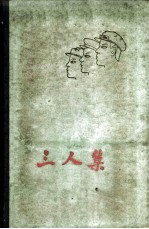 三人集